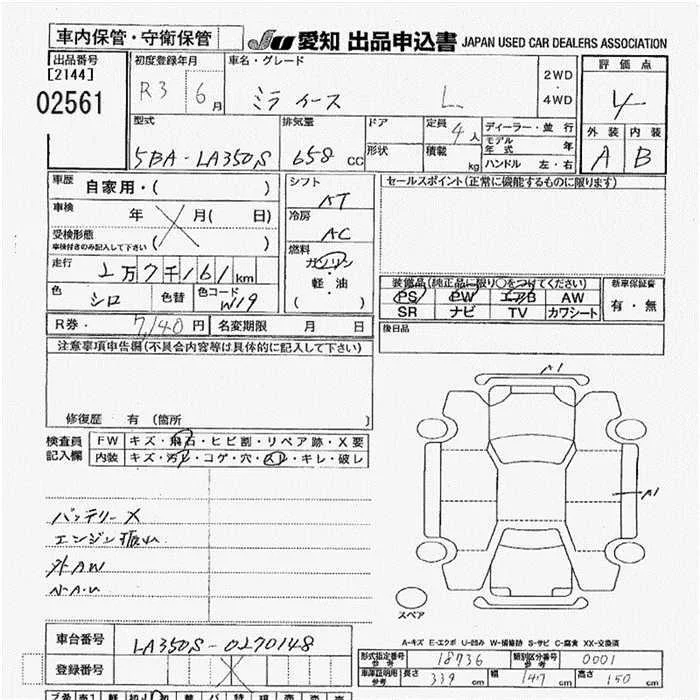 車内保管・守衛保管
JU 愛知 出品申込書 JAPAN USED CAR DEALERS ASSOCIATION
出品番号 [2144] 02561
初度登録年月 R3 6月
車名・グレード ミライース L
2WD・4WD
評価点 4
外装 A 内装 B
型式 5BA-LA350S
排気量 658 CC
ドア 形状
定員 4人 積載 kg
ディーラー・並行
モデル年式 年
ハンドル 左・右
車歴 自家用・( )
車検 年 月( 日)
受検形態 車検付きのみ記入して下さい ( )
走行 1万7千161km
色 シロ 色替 色コード W19
シフト AT
冷房 AC
燃料 ガソリン・軽油 ( )
セールスポイント(正常に機能するものに限ります)
装備品(純正品に限り○をつけてください)
PS PW エアB AW
SR ナビ TV カワシート
新車保証書 有・無
後日品
R券・ 7140円 名変期限 月 日
注意事項申告欄(不具合内容等は具体的に記入して下さい)
修復歴 有 (箇所 )
検査員記入欄
FW キズ・飛石・ヒビ割・リペア跡・X要
内装 キズ・汚レ・コゲ・穴・スレ・キレ・破レ
バッテリーX
エンジン振れ
外AW
A1
A1
スペア
A-キズ E-エクボ U-凹み W-補修跡 S-サビ C-腐食 XX-交換済
車台番号 LA350S-0270148
登録番号
形式指定番号 参考 18736 類別区分番号 参考 0001
車庫証明用 参考 長さ 339cm 幅 147cm 高さ 150cm